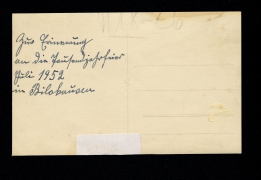 Zur Erinnerung
an die Tausendjahrfeier
Juli 1952
in